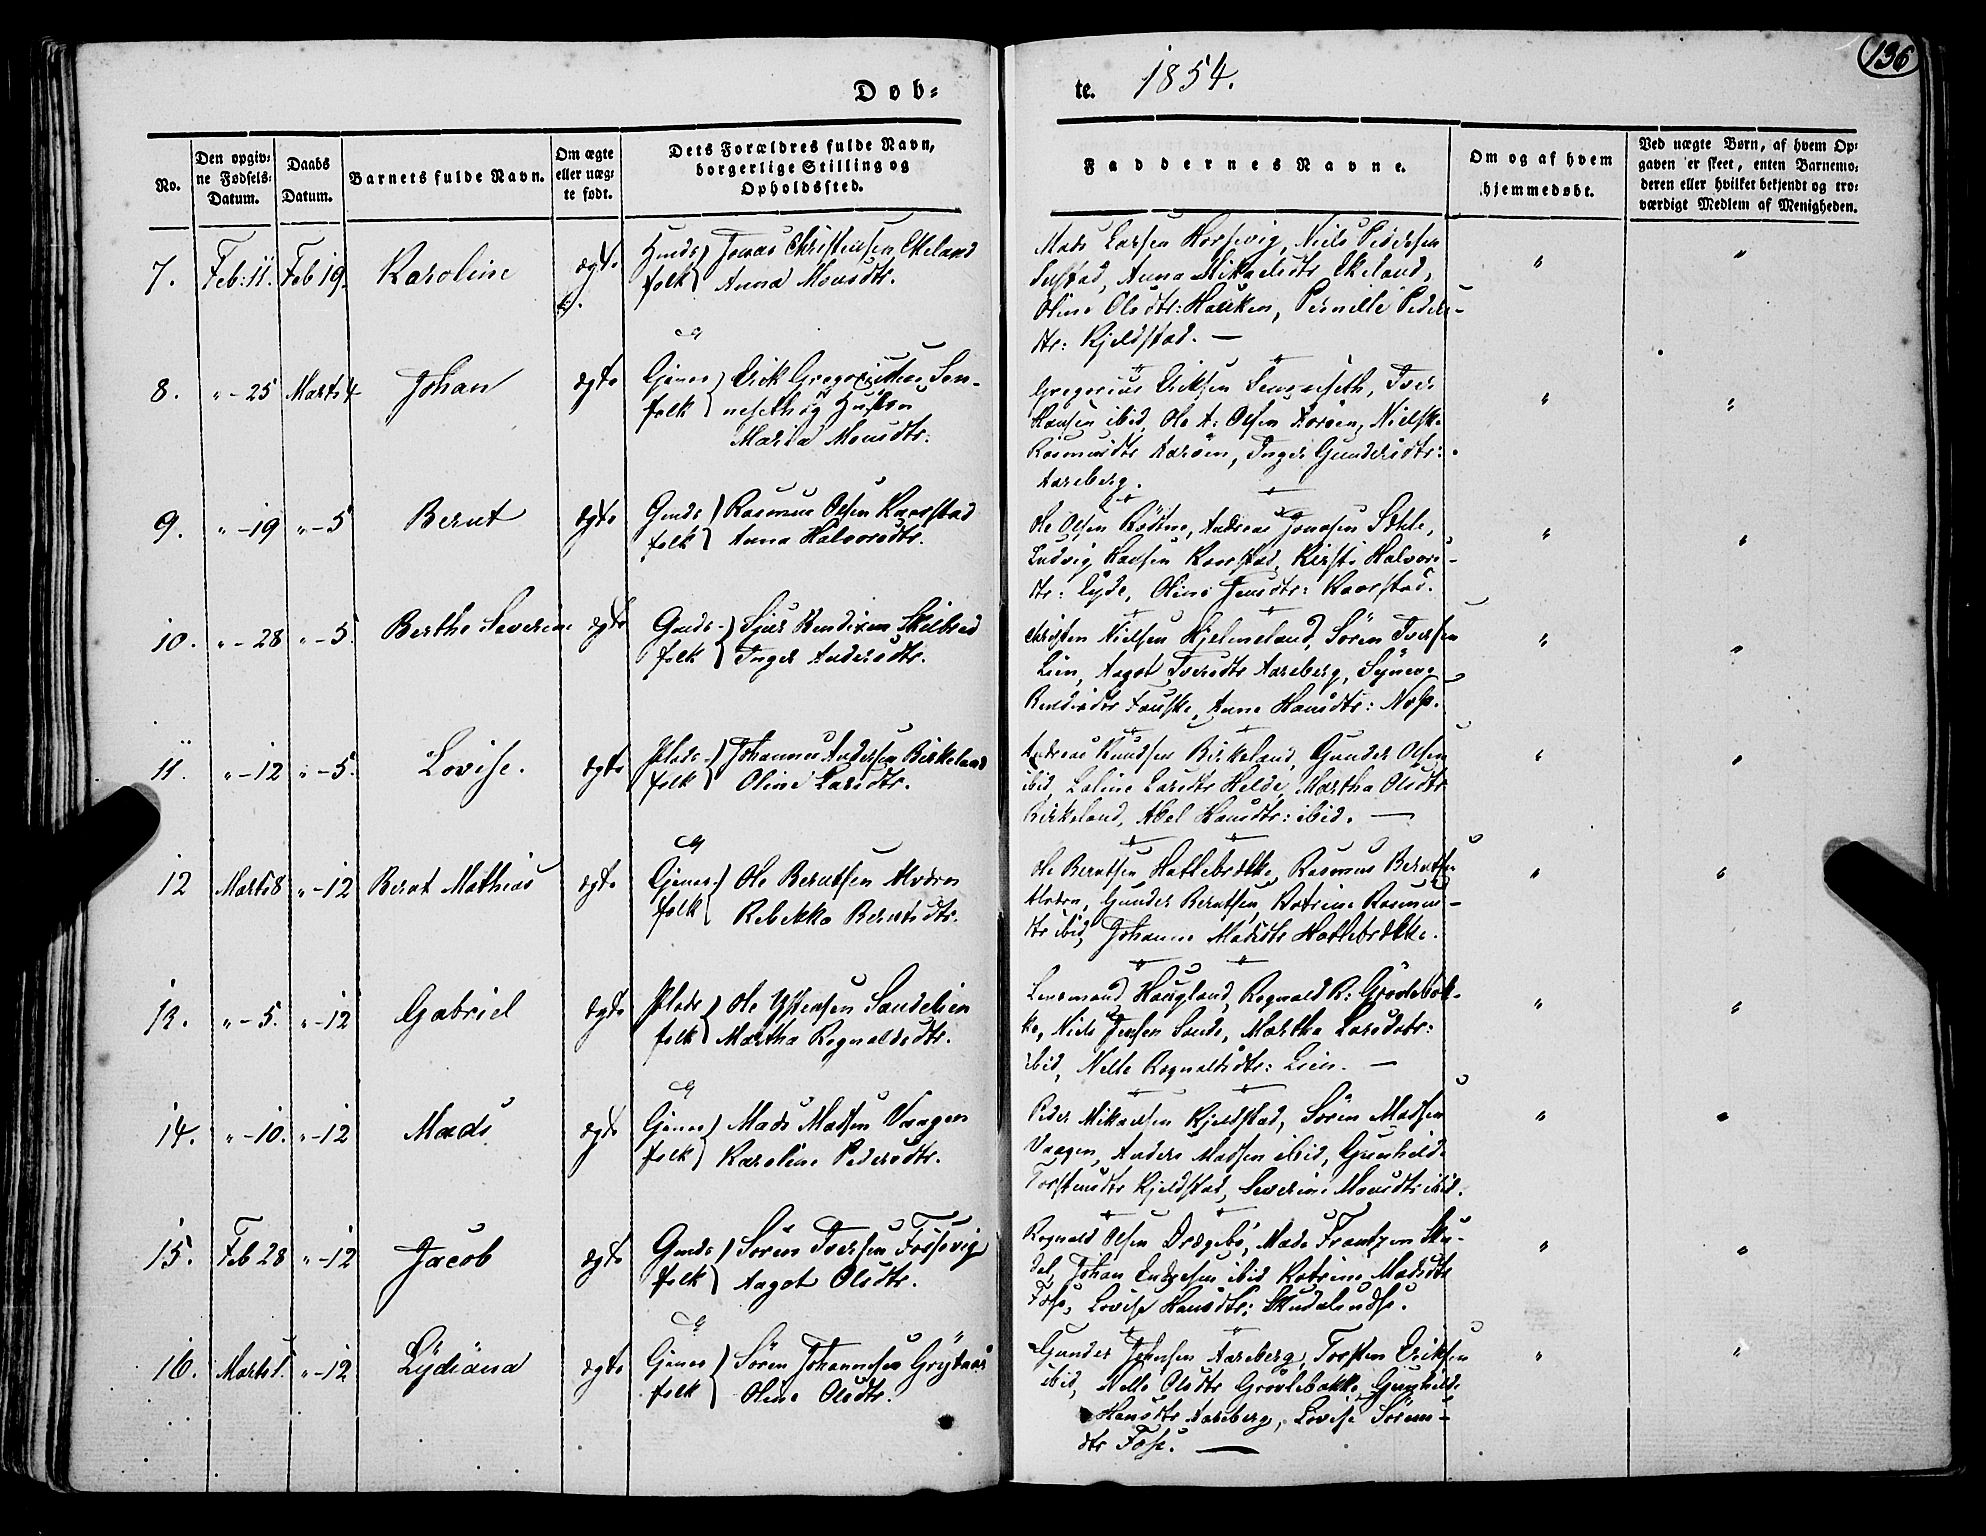 136
Døb-
te. 1854.
No.
Den opgiv-
ne Fødsels-
Datum.
Daabs
Datum.
Barnets fulde Navn.
Om ægte
eller uæg-
te født.
Dets Forældres fulde Navn,
borgerlige Stilling og
Opholdssted.
Faddernes Navne.
Om og af hvem
hjemmedøbt.
Ved uægte Børn, af hvem Op-
gaven er skeet, enten Barnemo-
deren eller hvilket bekjendt og tro-
værdigt Medlem af Menigheden.
7. Feb: 11. Feb 19. Karoline ægte
folk Jonas Christensen Ekeland
Anna Monsdtr.
Mads Larsen Horsevig, Niels Pedersen
Anna Mikaelsdtr Ekeland,
Oline Olsdtr: Hauken, Pernille Peders-
dtr: Kjeldstad. —
8. " - 25 Marts 4 Johan ægte
Gjemes folk Erik Gregoriussen Sen-
neseth og Hustru
Maria Monsdtr:
Gregorius Eriksen Senneseth, Iver
Hansen ibid, Ole A: Olsen Aarøen, Nielske
Rasmusdtr Aarøen, Inger Gundersdtr:
Aareberg.
9. " - 19 " - 5 Bernt ægte
Gmds folk Rasmus Olsen Kaarstad
Anna Halvorsdtr.
Ole Olsen Andreas Jonasen
Ludvig Hansen Kaarstad, Kirsti Halvors-
dtr: Oline Jensdtr: Kaarstad.
10. " - 28 " - 5. Berthe Severine ægte
Gmds- folk Sjur Bendixen Skilbred
Inger Andersdtr.
Christen Nielsen Hjelmeland, Sören Iversen
Lien, Aagot Iversdtr Aareberg, Synneve
Bendixdtr Fauske, Anne Hansdtr: Næss.
11. " - 12 " - 5. Lovise. ægte
Plads- folk Johannes Andersen Birkeland
Oline Larsdtr.
Andreas Knudsen Birkeland, Gunder Olsen
ibid, Larsdtr Helde, Martha Olsdtr
Birkeland, Abel Hansdtr: ibid. —
12 Marts 8 " - 12 Bernt Mathias ægte
Gjemes- folk Ole Berntsen Alværen
Rebekka Berntsdtr.
Ole Berntsen Hatlebrekke, Rasmus Berntsen
Alværen, Gunder Berntsen, Katrine Rasmus-
dtr ibid, Johanne Madsdtr Hatlebrekke.
13. " - 5. " - 12 Gabriel ægte
Plads folk Ole Ystensen Sandelien
Martha Rognaldsdtr.
Lensmand Haugland, Rognald R: Grovlebak-
ke, Niels Jensen Sande, Martha Larsdatr:
ibid, Nelle Rognaldsdtr: Lien. —
14. " - 10. " - 12 Mads ægte
Gjemes folk Mads Madsen Vaagen
Karoline Pedersdtr.
Peder Mikaelsen Kjeldstad, Sören Madsen
Vaagen, Anders Madsen ibid, Gunhilde
Torstensdtr Kjeldstad, Severine Monsdtr ibid.
15. Feb 28 " - 12 Jacob ægte
Gmds folk Sören Iversen Fossevig
Aagot Olsdtr.
Rognald Olsen Drægebø, Mads Frantzen Sku-
dal, Johan Endresen ibid Katrine Madsdtr
Foss, Lovise Hansdtr:
16. Marts 1. " - 12 Lydiäna ægte
Gjemes folk Sören Johannesen Grytaas
Oline Olsdtr.
Gunder Jensen Aareberg, Torsten Eriksen
ibid, Nelle Olsdtr Grovlebakke, Gunhilde
Hansdtr Aareberg, Lovise Sörens-
dtr Foss. —